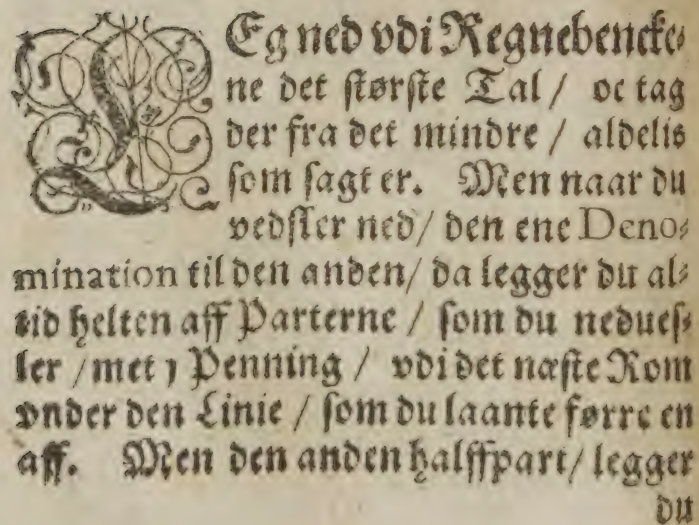 LEg ned vdi Regnebencke⸗
ne det største Tal / oc tag
der fra det mindre / aldelis
som sagt er. Men naar du
vedsler ned / den ene Deno⸗
mination til den anden / da legger du al⸗
tid helten aff Parterne / som du neduex⸗
ler / met j Penning / vdi det næste Rom
vnder den Linie / som du laante førre en
aff. Men den anden halffpart / legger
du